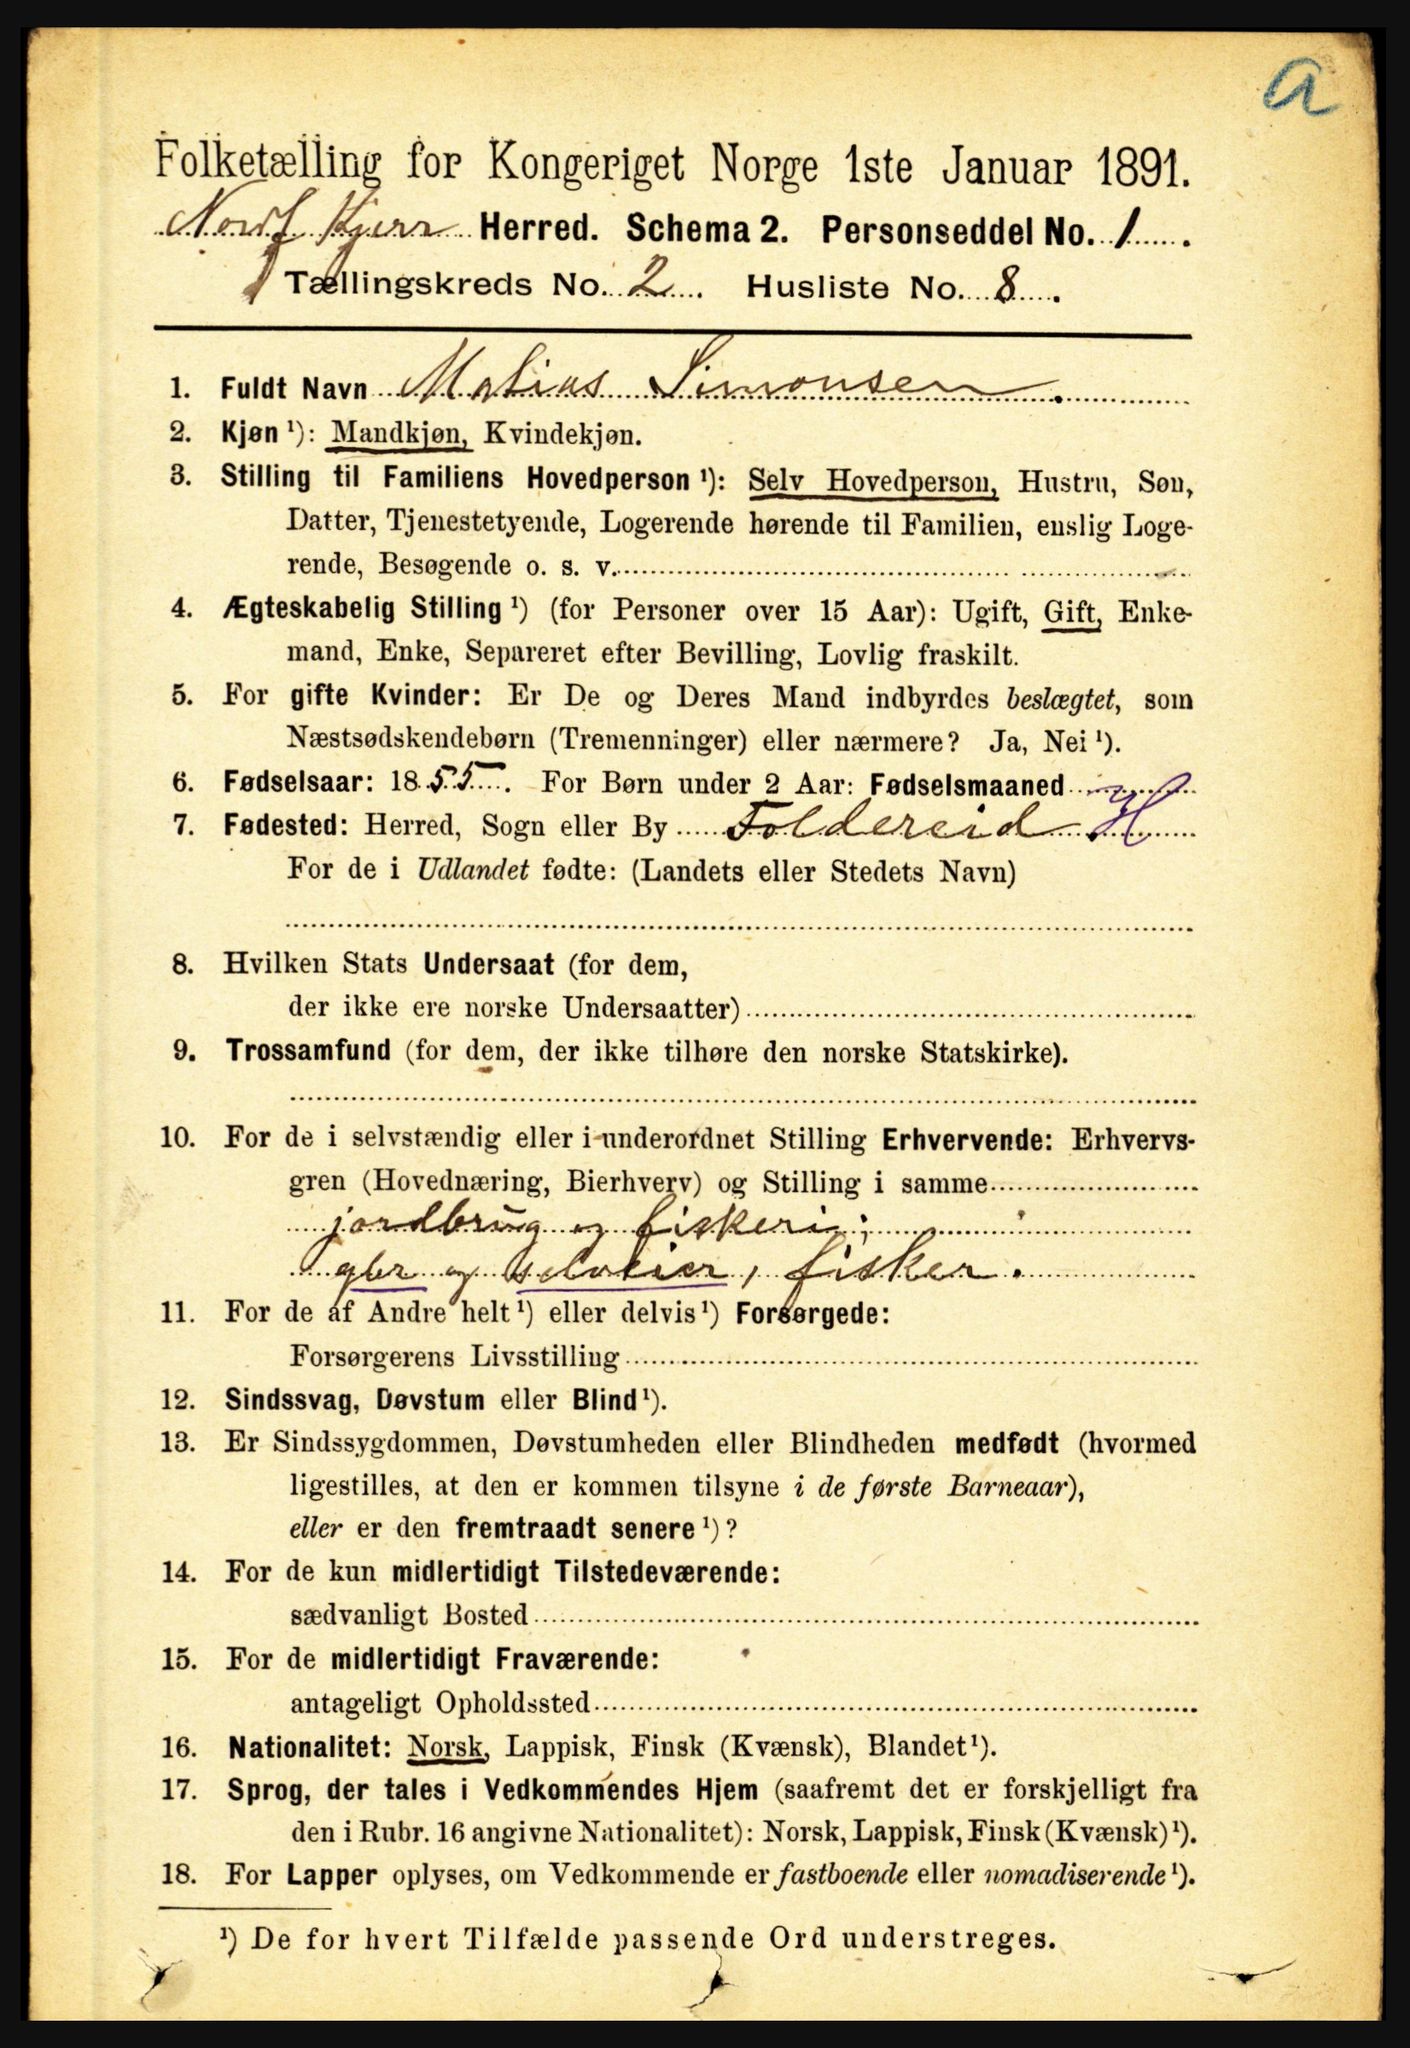 a
Folketælling for Kongeriget Norge 1ste Januar 1891.
Herred. Schema 2. Personseddel No. 1.
Tællingskreds No. 2. Husliste No. 8.
1. Fuldt Navn Matias Simonsen.
2. Kjøn ¹): Mandkjøn, Kvindekjøn.
3. Stilling til Familiens Hovedperson ¹): Selv Hovedperson, Hustru, Søn,
Datter, Tjenestetyende, Logerende hørende til Familien, enslig Loge-
rende, Besøgende o. s. v.
4. Ægteskabelig Stilling ¹) (for Personer over 15 Aar): Ugift, Gift, Enke-
mand, Enke, Separeret efter Bevilling, Lovlig fraskilt.
5. For gifte Kvinder: Er De og Deres Mand indbyrdes beslægtet, som
Næstsødskendebørn (Tremenninger) eller nærmere? Ja, Nei ¹).
6. Fødselsaar: 1855. For Børn under 2 Aar: Fødselsmaaned
7. Fødested: Herred, Sogn eller By Foldereid H
For de i Udlandet fødte: (Landets eller Stedets Navn)
8. Hvilken Stats Undersaat (for dem,
der ikke ere norske Undersaatter)
9. Trossamfund (for dem, der ikke tilhøre den norske Statskirke).
10. For de i selvstændig eller i underordnet Stilling Erhvervende: Erhvervs-
gren (Hovednæring, Bierhverv) og Stilling i samme
jordbrug og fiskeri;
gbr og selveier, fisker.
11. For de af Andre helt ¹) eller delvis ¹) Forsørgede:
Forsørgerens Livsstilling
12. Sindssvag, Døvstum eller Blind ¹).
13. Er Sindssygdommen, Døvstumheden eller Blindheden medfødt (hvormed
ligestilles, at den er kommen tilsyne i de første Barneaar),
eller er den fremtraadt senere ¹)?
14. For de kun midlertidigt Tilstedeværende:
sædvanligt Bosted
15. For de midlertidigt Fraværende:
antageligt Opholdssted
16. Nationalitet: Norsk, Lappisk, Finsk (Kvænsk), Blandet ¹).
17. Sprog, der tales i Vedkommendes Hjem (saafremt det er forskjelligt fra
den i Rubr. 16 angivne Nationalitet): Norsk, Lappisk, Finsk (Kvænsk) ¹).
18. For Lapper oplyses, om Vedkommende er fastboende eller nomadiserende ¹).
¹) De for hvert Tilfælde passende Ord understreges.